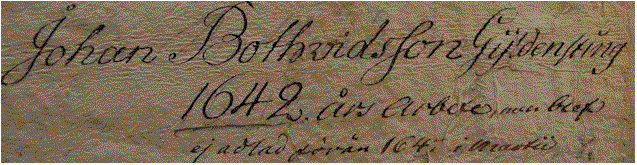 Johan Bothvidsson Gyldensting
1642. års arbete, men blef
ej adlad förän 164 i Martii